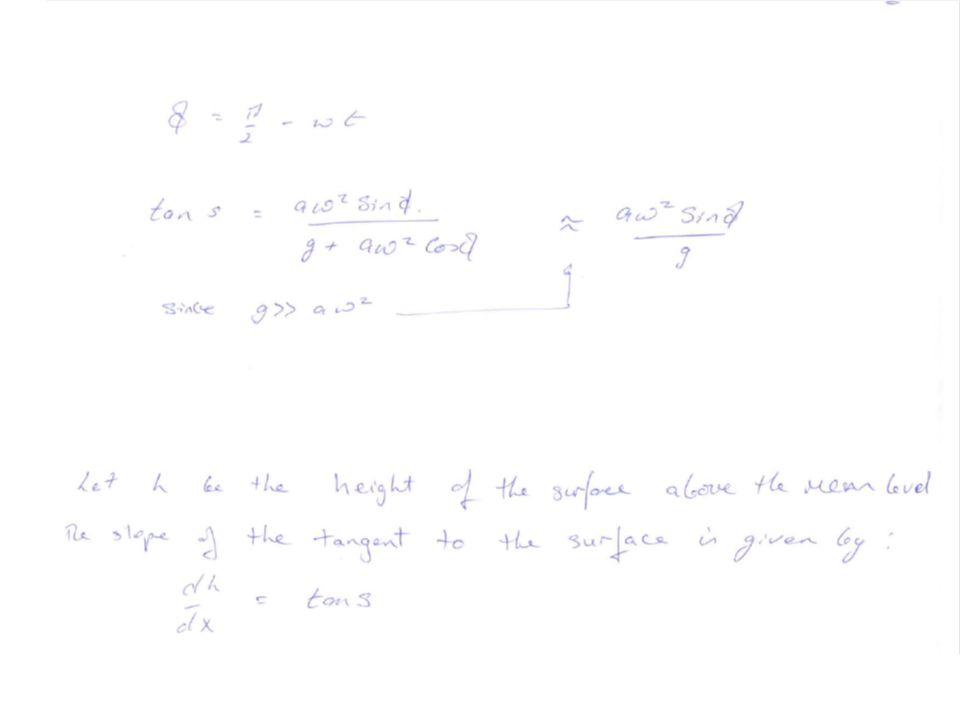 ϕ = π/2 - ωt
tan s = aω² sinϕ. / g + aω² cosϕ ≈ aω² sinϕ / g
since g >> aω²
Let h be the height of the surface above the mean level
The slope of the tangent to the surface is given by :
dh/dx = tan s